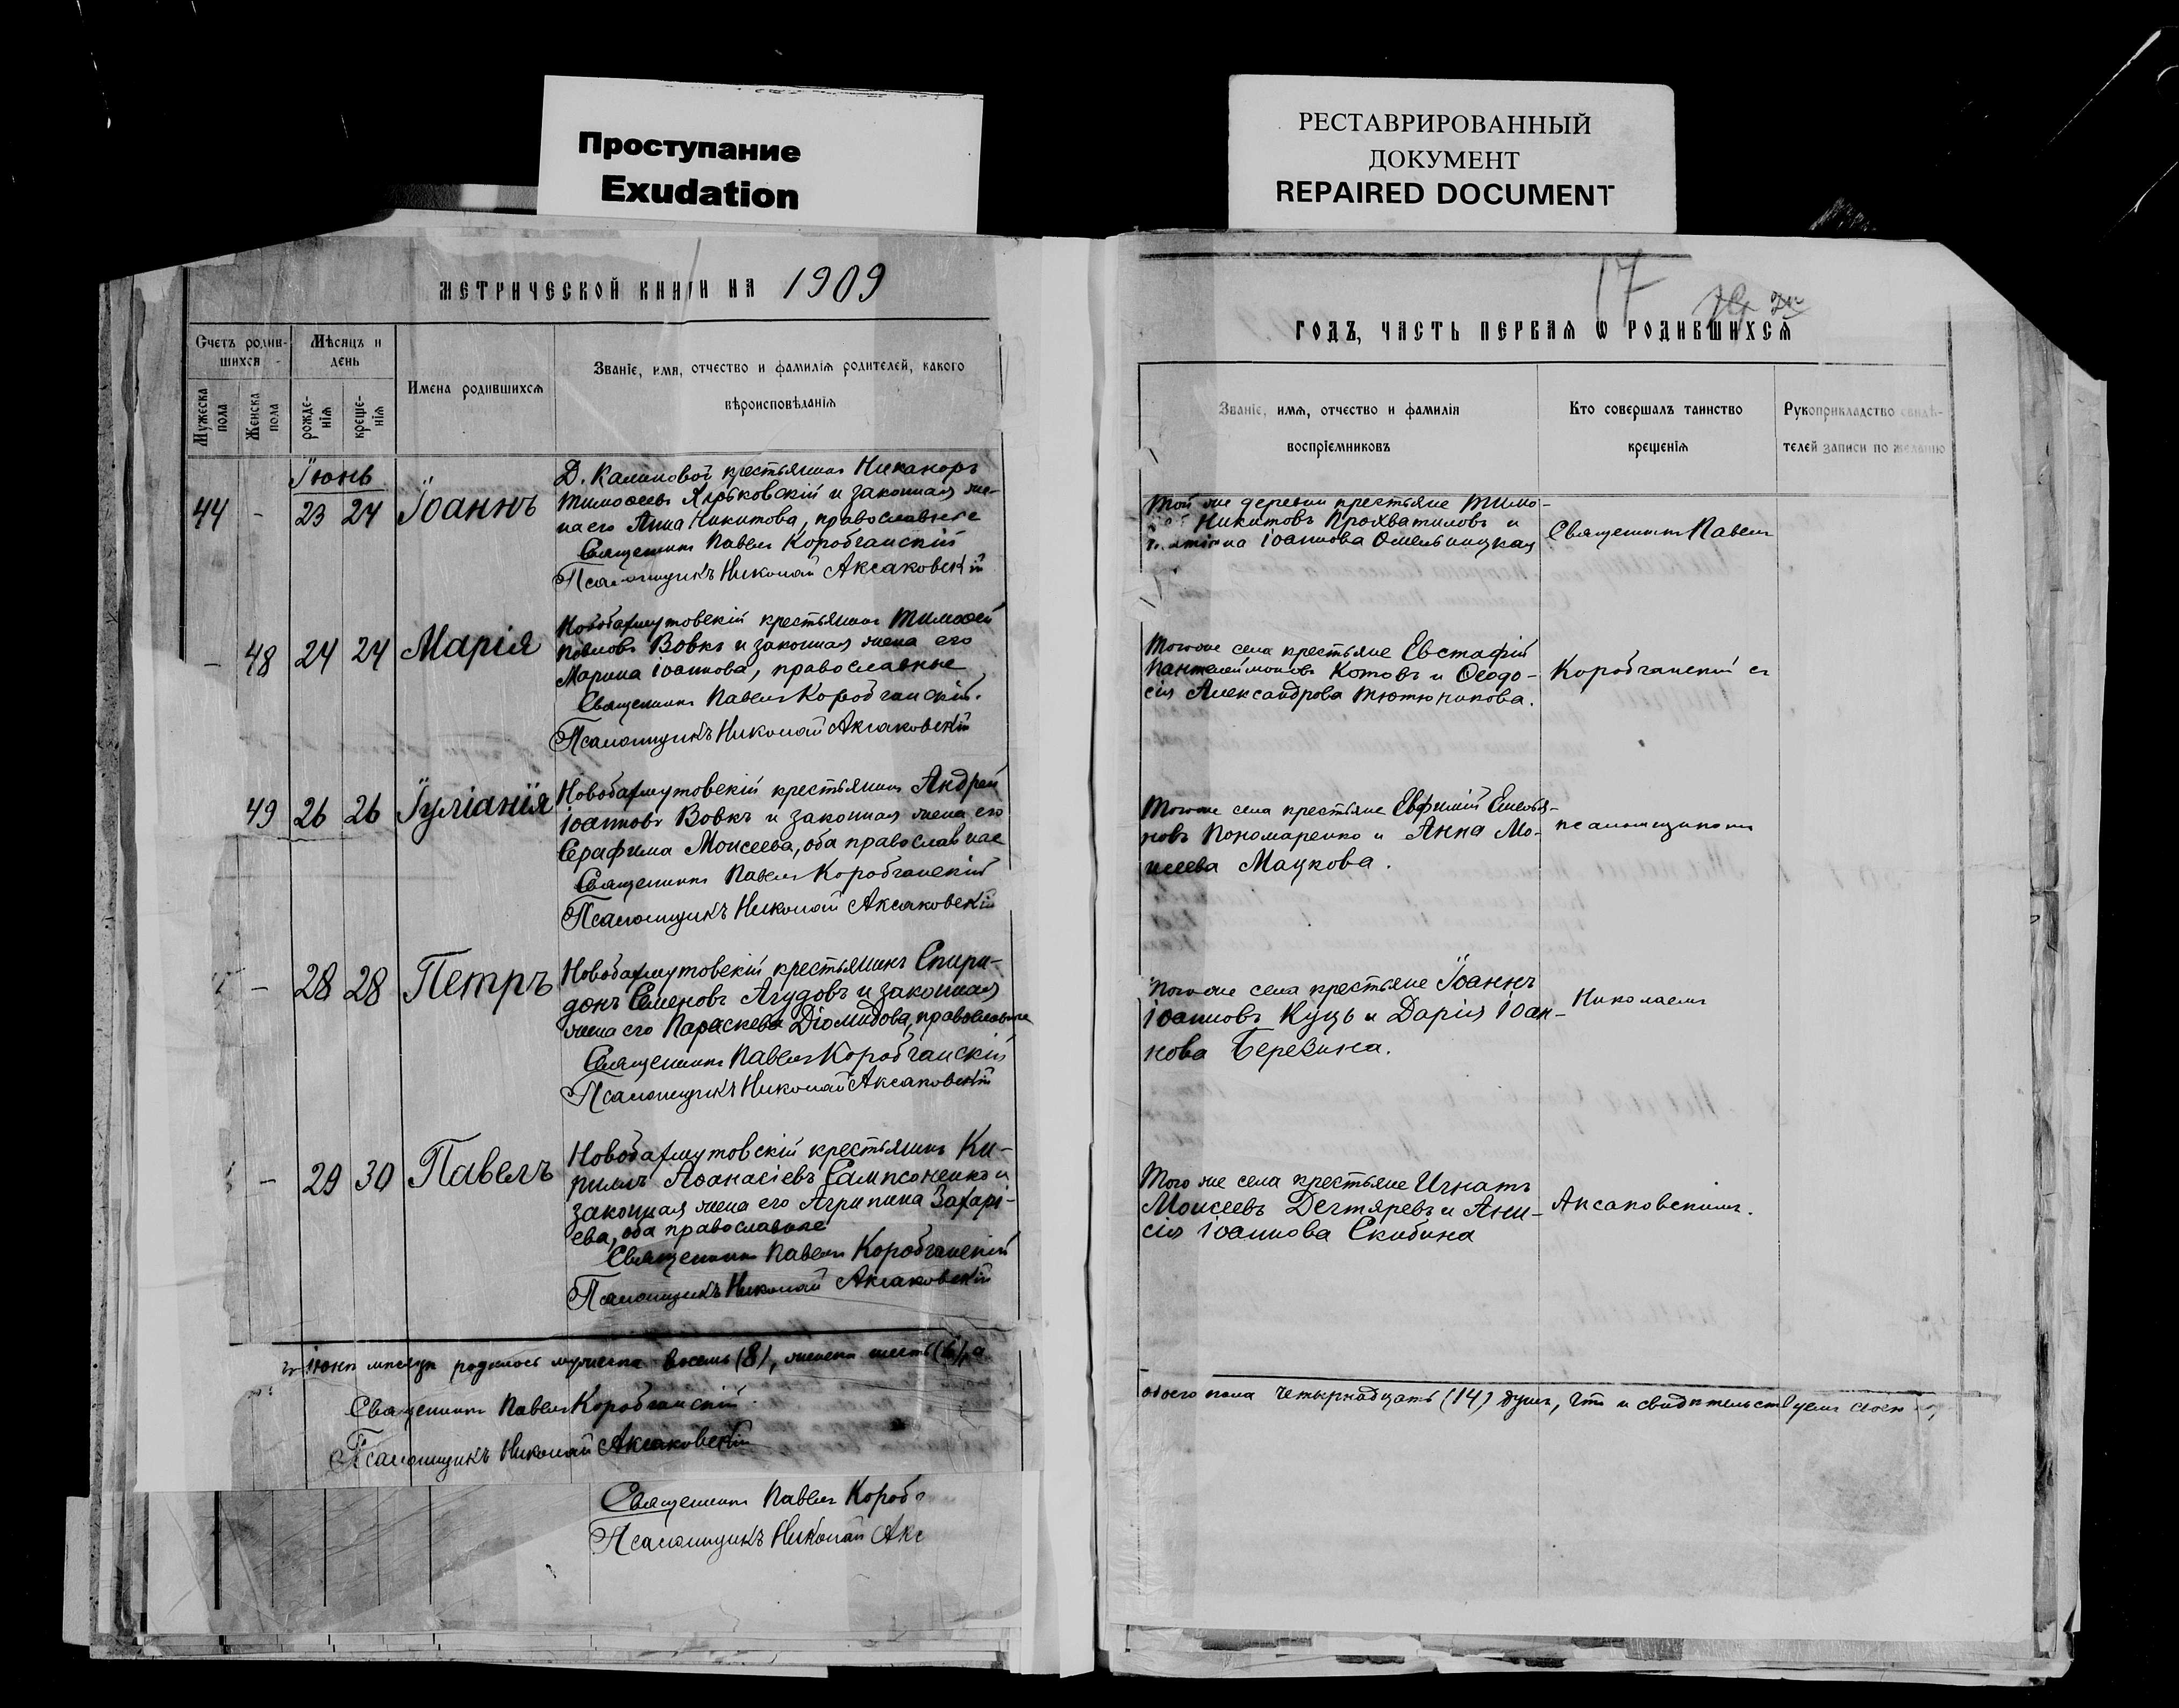 Проступание
Exudation
РЕСТАВРИРОВАННЫЙ
ДОКУМЕНТ
REPAIRED DOCUMENT
МЕТРИЧЕСКОЙ КНИГИ НА 1909
Счетъ родив-
шихся
Мужеска пола
Женска пола
Мѣсяцъ и
день
рожде-
нія
креще-
нія
Имена родившихся
Званіе, имя, отчество и фамилія родителей, какого
вѣроисповѣданія
Іюнь
44 - 23 24 Іоаннъ
Д. Калиновой крестьянинъ Никаноръ
Тимоѳеевъ и законная же-
на его Анна Никитова, православные
Священникъ Павелъ Коробчанскій
Псаломщикъ Николай Аксаковскій
- 48 24 24 Марія
Новобахмутовскій крестьянинъ Тимоѳей
Павловъ Вовкъ и законная жена его
Марина Іоаннова, православные
Священникъ Павелъ Коробчанскій.
Псаломщикъ Николай Аксаковскій
49 26 26 Іуліанія
Новобахмутовскій крестьянинъ Андрей
Іоанновъ Вовкъ и законная жена его
Серафима Моисеева, оба православные
Священникъ Павелъ Коробчанскій
Псаломщикъ Николай Аксаковскій
- 28 28 Петръ
Новобахмутовскій крестьянинъ Спири-
донъ Семеновъ Агудовъ и законная
жена его Параскева Діомидова, православные
Священникъ Павелъ Коробчанскій
Псаломщикъ Николай Аксаковскій
- 29 30 Павелъ
Новобахмутовскій крестьянинъ Ки-
риллъ Аѳанасіевъ Сампсоненко и
законная жена его Агрипина Захарі-
ева, оба православные
Священникъ Павелъ Коробчанскій
Псаломщикъ Николай Аксаковскій
Іюнѣ мѣсяцѣ родилось мужеска восемь (8), женска шесть (6), а
Священникъ Павелъ Коробчанскій
Псаломщикъ Николай Аксаковскій
Священникъ Павелъ Короб
Псаломщикъ Николай Акс
17
ГОДЪ, ЧАСТЬ ПЕРВАЯ Ѡ РОДИВШИХСЯ
Званіе, имя, отчество и фамилія
воспріемниковъ
Кто совершалъ таинство
крещенія
Рукоприкладство свидѣ-
телей записи по желанію
Той же деревни крестьяне Тимо-
Никитовъ Прохватиловъ и
Іоаннова Омельницкая
Священникъ Павелъ
Того же села крестьяне Евстафій
Пантелеймоновъ Котовъ и Ѳеодо-
сія Александрова Тютюникова.
Коробчанскій съ
Того же села крестьяне Евфимій Емелья-
новъ Пономаренко и Анна Мо-
исеева Мацкова.
псаломщикомъ
Того же села крестьяне Іоаннъ
Іоанновъ Куць и Дарія Іоан-
нова Березина.
Николаемъ
Того же села крестьяне Игнатъ
Моисеевъ Дегтяревъ и Ани-
сія Іоаннова Скибина
Аксаковскимъ.
обоего пола четырнадцать (14) душъ, что и свидѣтельствуемъ